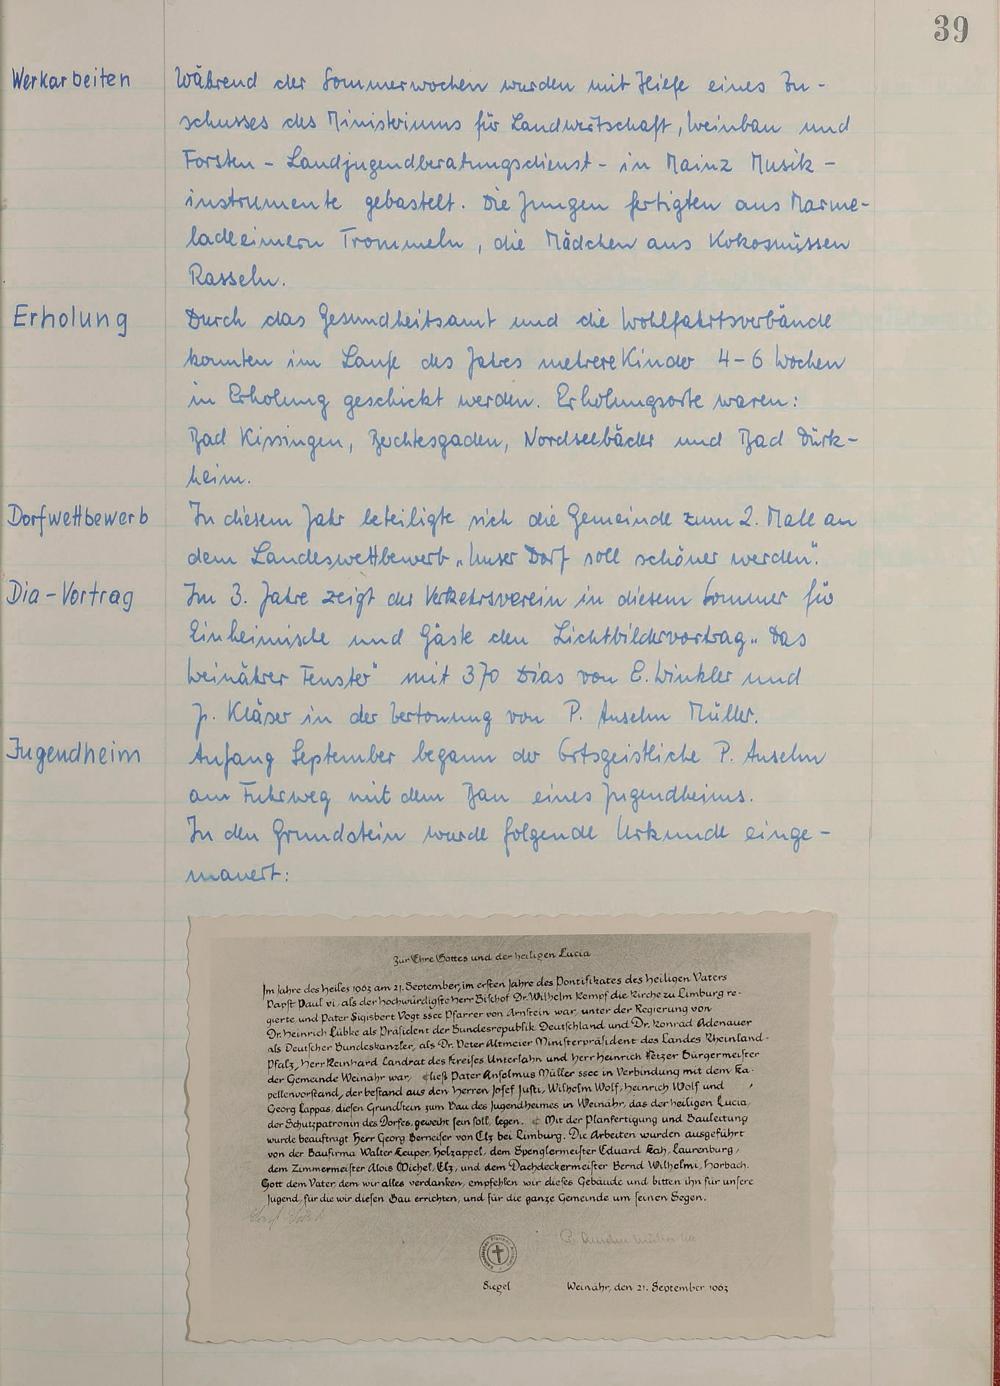 39
Werkarbeiten
Während der Sommerwochen wurden mit Hilfe eines Zu-
schusses des Ministeriums für Landwirtschaft, Weinbau und
Forsten - Landjugendberatungsdienst - in Mainz Musik-
instrumente gebastelt. Die Jungen fertigten aus Marme-
ladeeimern Trommeln, die Mädchen aus Kokosnüssen
Rasseln.
Erholung
Durch das Gesundheitsamt und die Wohlfahrtsverbände
konnten im Laufe des Jahres mehrere Kinder 4-6 Wochen
in Erholung geschickt werden. Erholungsorte waren:
Bad Kissingen, Berchtesgaden, Nordseebäder und Bad Dürk-
heim.
Dorfwettbewerb
In diesem Jahr beteiligte sich die Gemeinde zum 2. Male an
dem Landeswettbewerb „Unser Dorf soll schöner werden".
Dia-Vortrag
Im 3. Jahre zeigt der Verkehrsverein in diesem Sommer für
Einheimische und Gäste den Lichtbildervortrag „Das
Weinährer Fenster" mit 370 Dias von E. Winkler und
J. Kläser in der Vertonung von P. Anselm Müller.
Jugendheim
Anfang September begann der Ortsgeistliche P. Anselm
am Fuhrweg mit dem Bau eines Jugendheims.
In den Grundstein wurde folgende Urkunde einge-
mauert:
Zur Ehre Gottes und der heiligen Lucia
Im Jahre des Heiles 1963 am 21. September, im ersten Jahre des Pontifikates des Heiligen Vaters
Papst Paul VI, als der hochwürdigste Herr Bischof Dr. Wilhelm Kempf die Kirche zu Limburg re-
gierte und Pater Sigisbert Vogt sscc Pfarrer von Arnstein war, unter der Regierung von
Dr. Heinrich Lübke als Präsident der Bundesrepublik Deutschland und Dr. Konrad Adenauer
als Deutscher Bundeskanzler, als Dr. Peter Altmeier Ministerpräsident des Landes Rheinland-
Pfalz, Herr Reinhard Landrat des Kreises Unterlahn und Herr Heinrich Fetzer Bürgermeister
der Gemeinde Weinähr war, ließ Pater Anselmus Müller sscc in Verbindung mit dem Ka-
pellenvorstand, der bestand aus den Herren Josef Justi, Wilhelm Wolf, Heinrich Wolf und
Georg Lappas, diesen Grundstein zum Bau des Jugendheimes in Weinähr, das der heiligen Lucia,
der Schutzpatronin des Dorfes, geweiht sein soll, legen. Mit der Planfertigung und Bauleitung
wurde beauftragt Herr Georg Berneiser von Elz bei Limburg. Die Arbeiten wurden ausgeführt
von der Baufirma Walter Keuper, Holzappel, dem Spenglermeister Eduard Kah, Laurenburg,
dem Zimmermeister Alois Michel, Elz, und dem Dachdeckermeister Bernd Wilhelmi, Horbach.
Gott dem Vater, dem wir alles verdanken, empfehlen wir dieses Gebäude und bitten ihn für unsere
Jugend, für die wir diesen Bau errichten, und für die ganze Gemeinde um seinen Segen.
P. Anselm Müller sscc
Siegel
Weinähr, den 21. September 1963